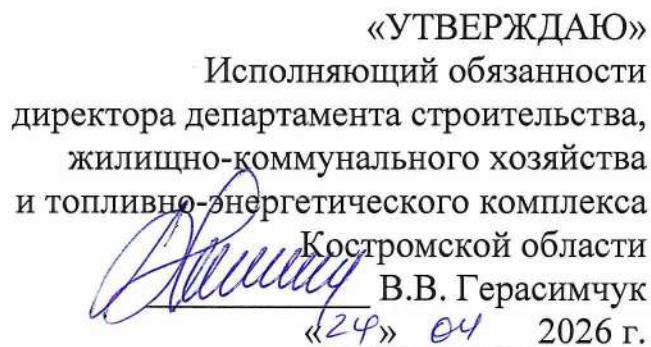 «УТВЕРЖДАЮ»
Исполняющий обязанности
директора департамента строительства,
жилищно-коммунального хозяйства
и топливно-энергетического комплекса
Костромской области
В.В. Герасимчук
«24» 04 2026 г.